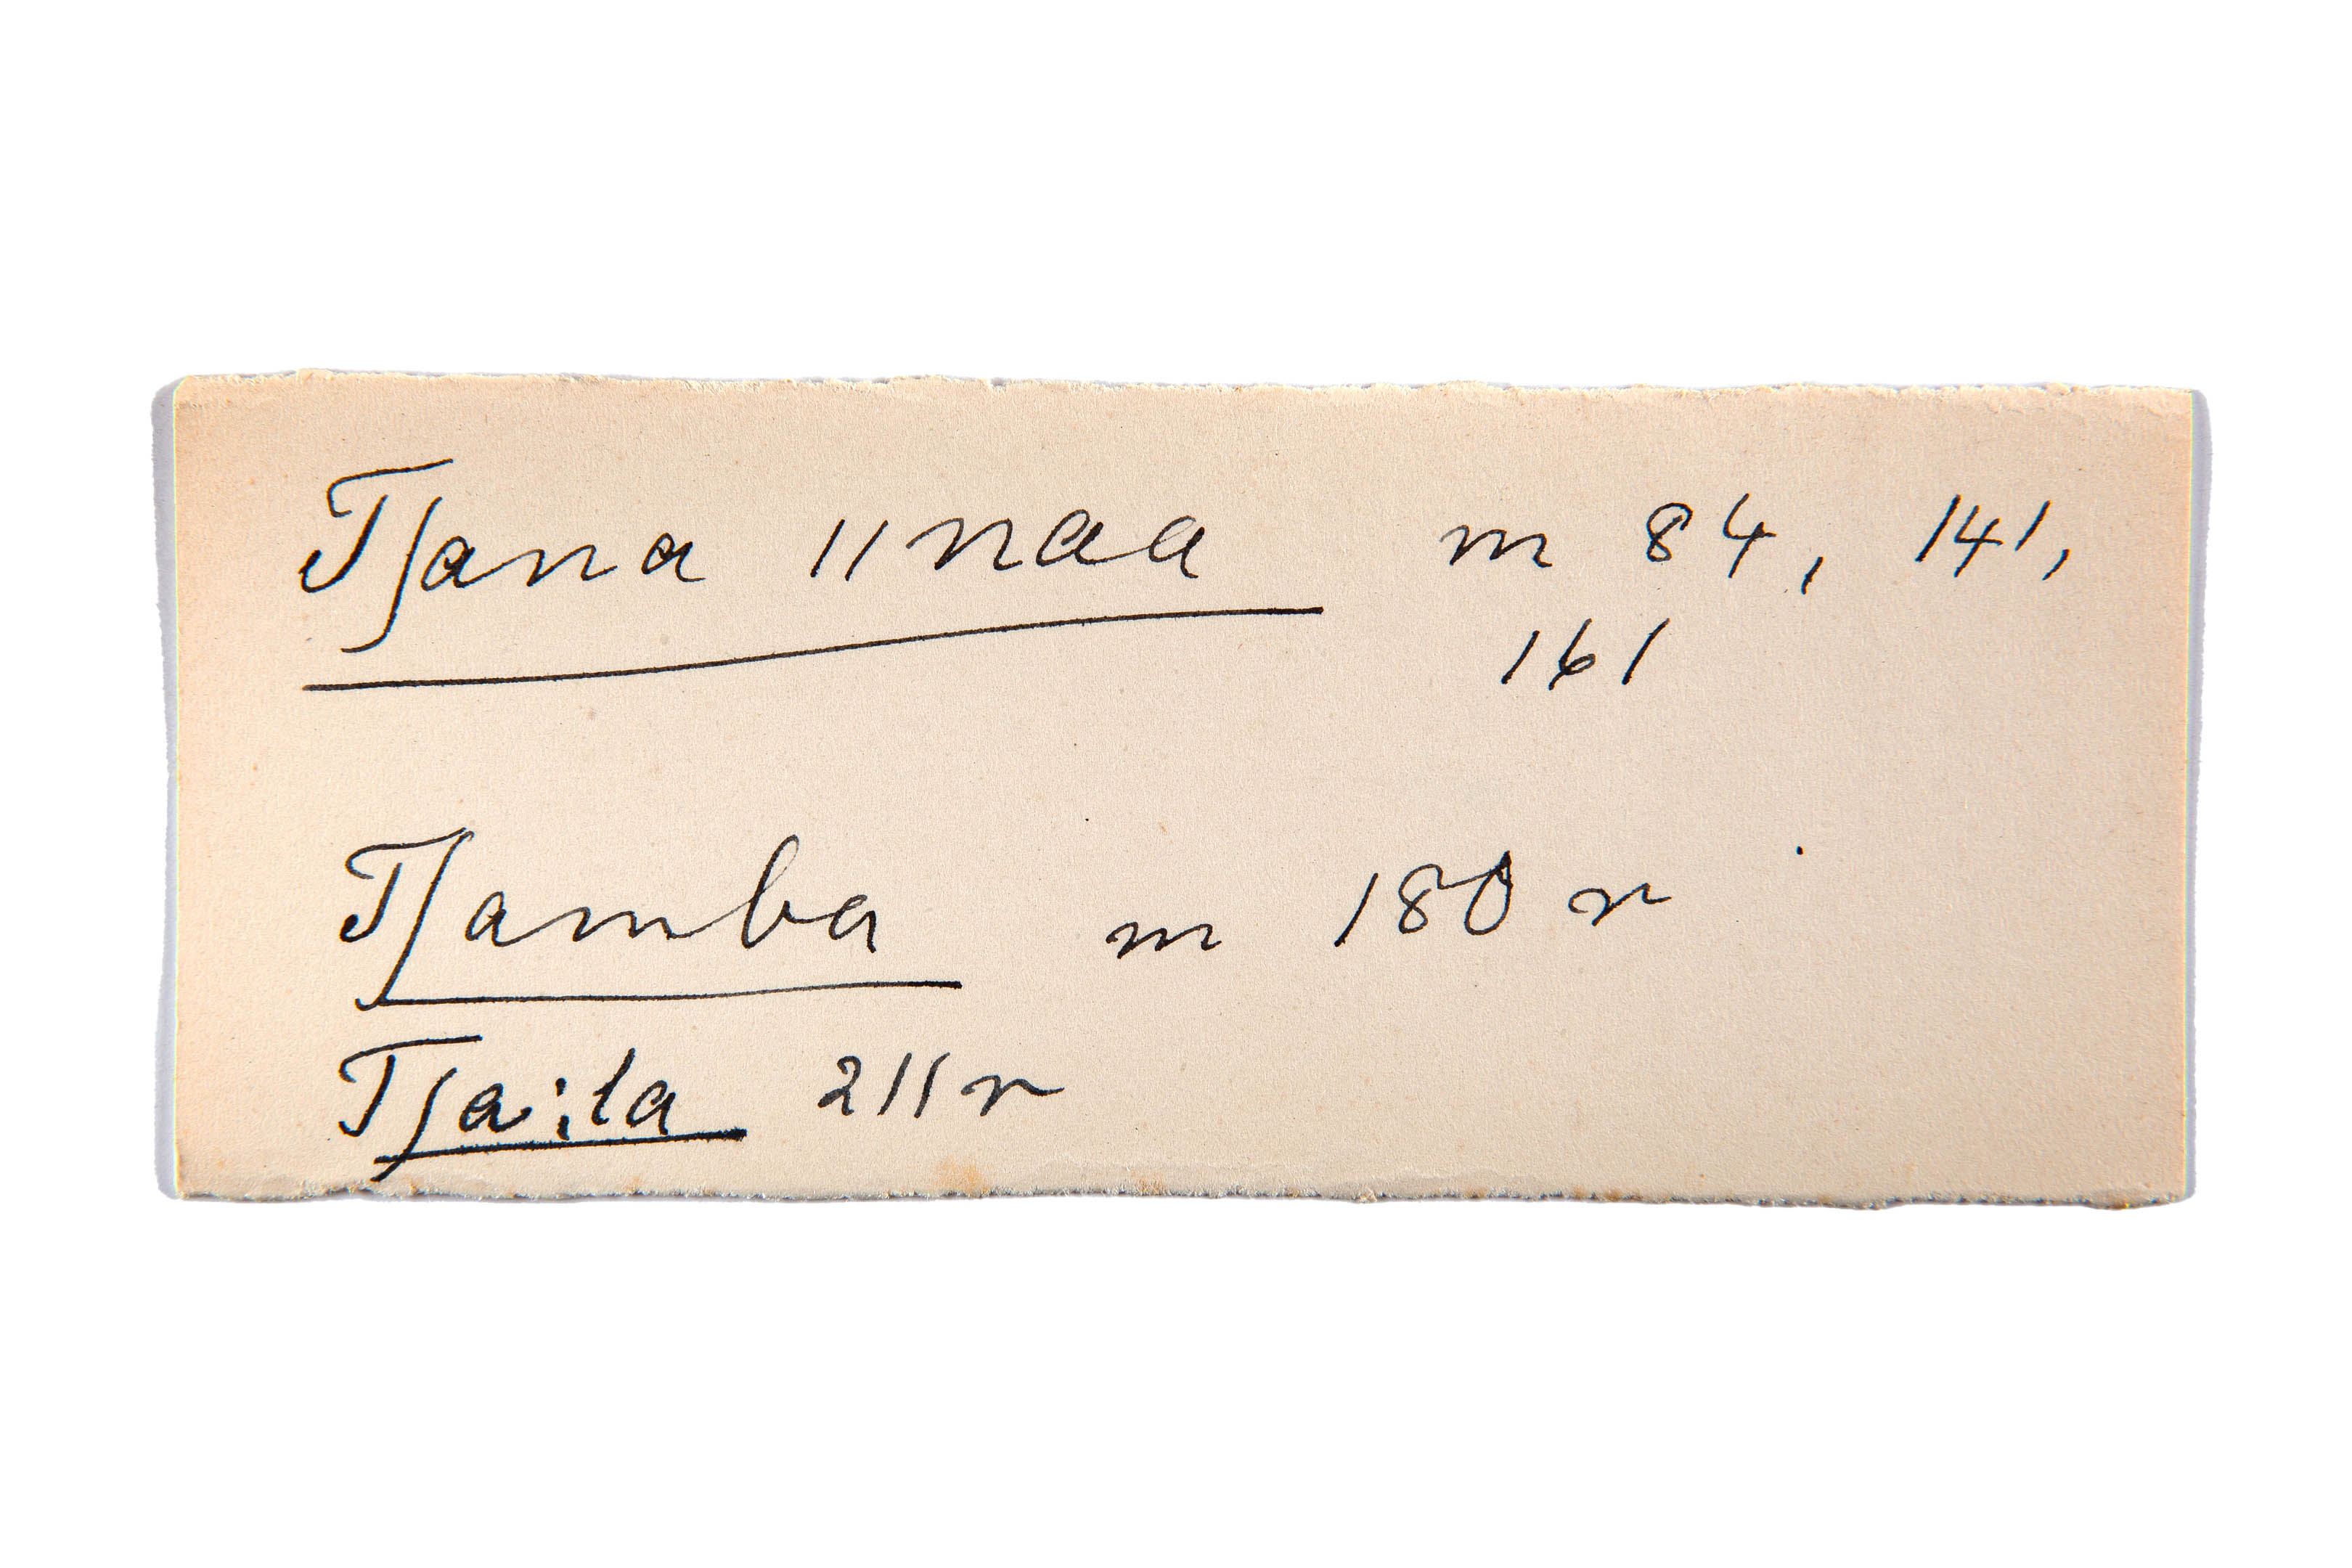 Tjana ǁnaa m 84, 141,
161
Tjamba m 180 r
Tjaila 211 r